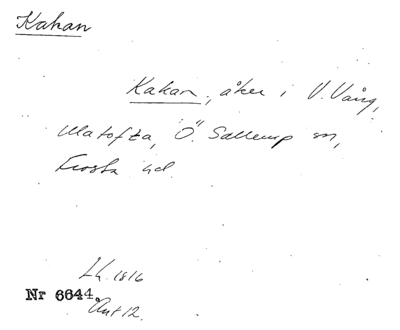 Kahan
Kahan, åker i V. Vång,
Ulatofta, Ö. Sallerup sn,
Frosta hd.
Lh. 1816
Nr 6644.
Ant 12.